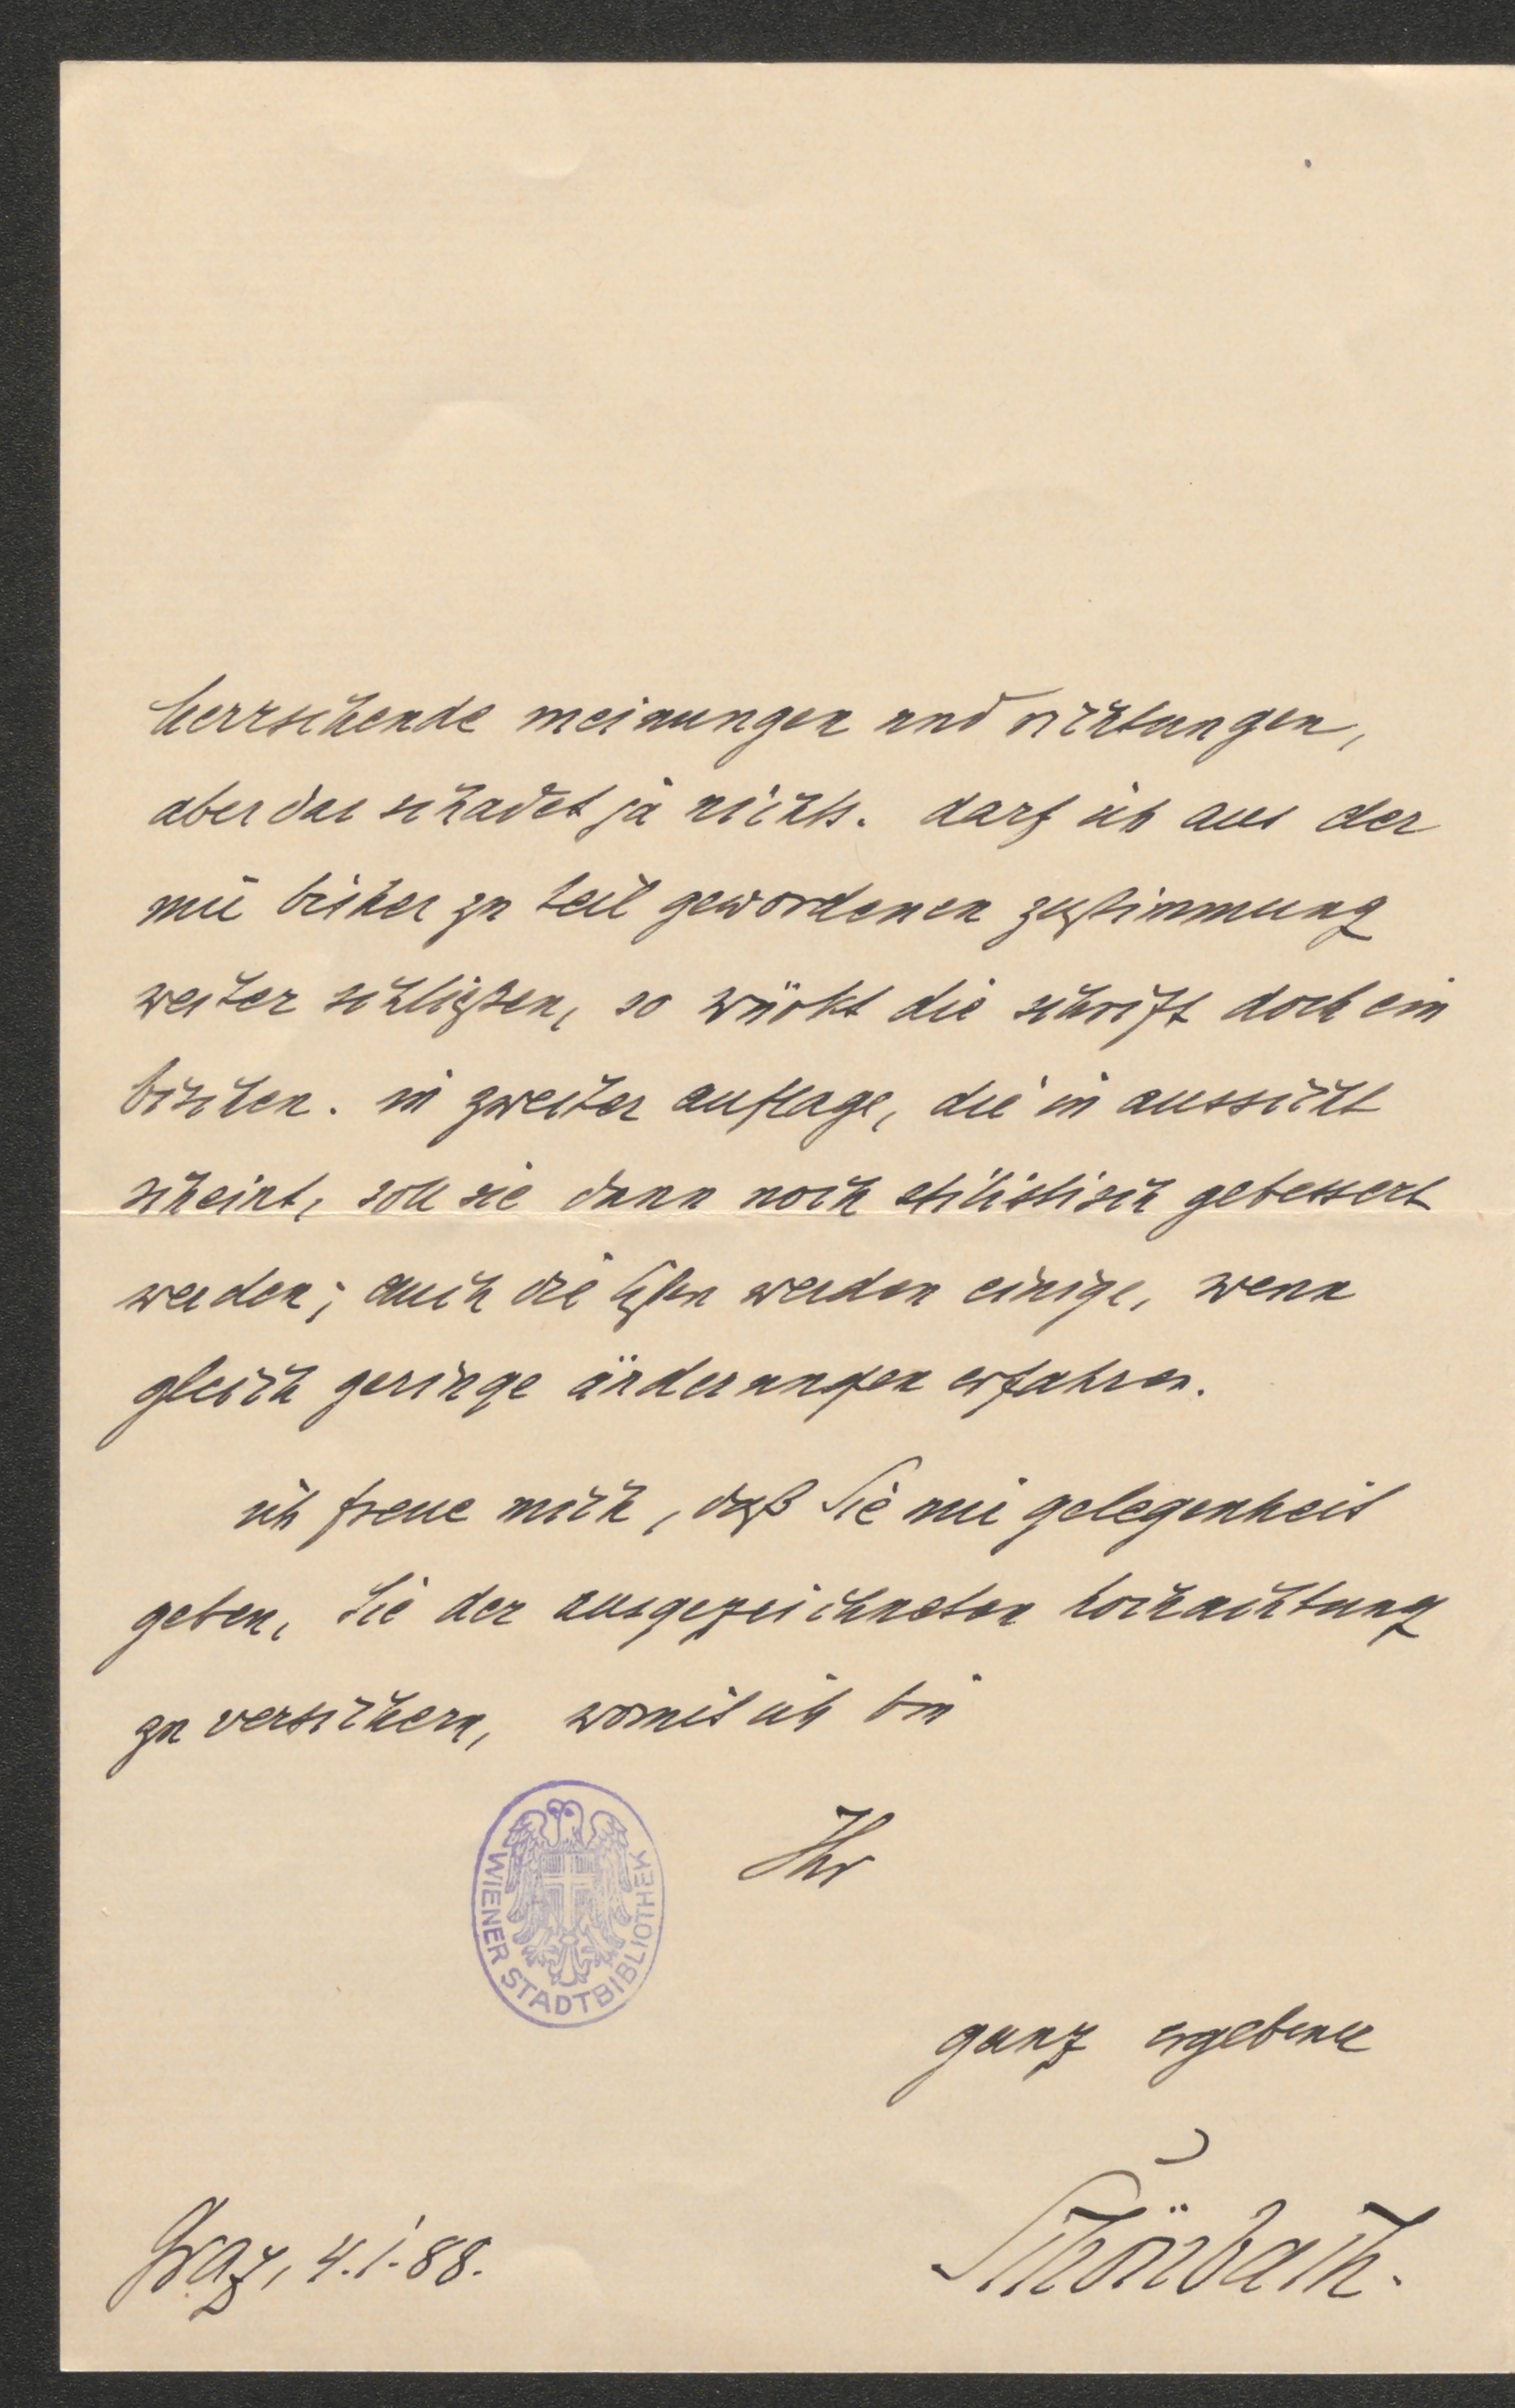 herrschende meinungen und richtungen,
aber das schadet ja nichts. darf ich aus der
mir bisher zu teil gewordenen zustimmung
weiter schließen, so würkt die schrift doch ein
bischen. in zweiter auflage, die in aussicht
scheint, soll sie dann noch stilistisch gebessert
werden; auch die listen werden einige, wenn
gleich geringe änderungen erfahren.
ich freue mich, daß Sie mir gelegenheit
geben, Sie der ausgezeichneten hochachtung
zu versichern, womit ich bin
Ihr
WIENER STADTBIBLIOTHEK
ganz ergebener
Schönbach.
Graz, 4.1.88.